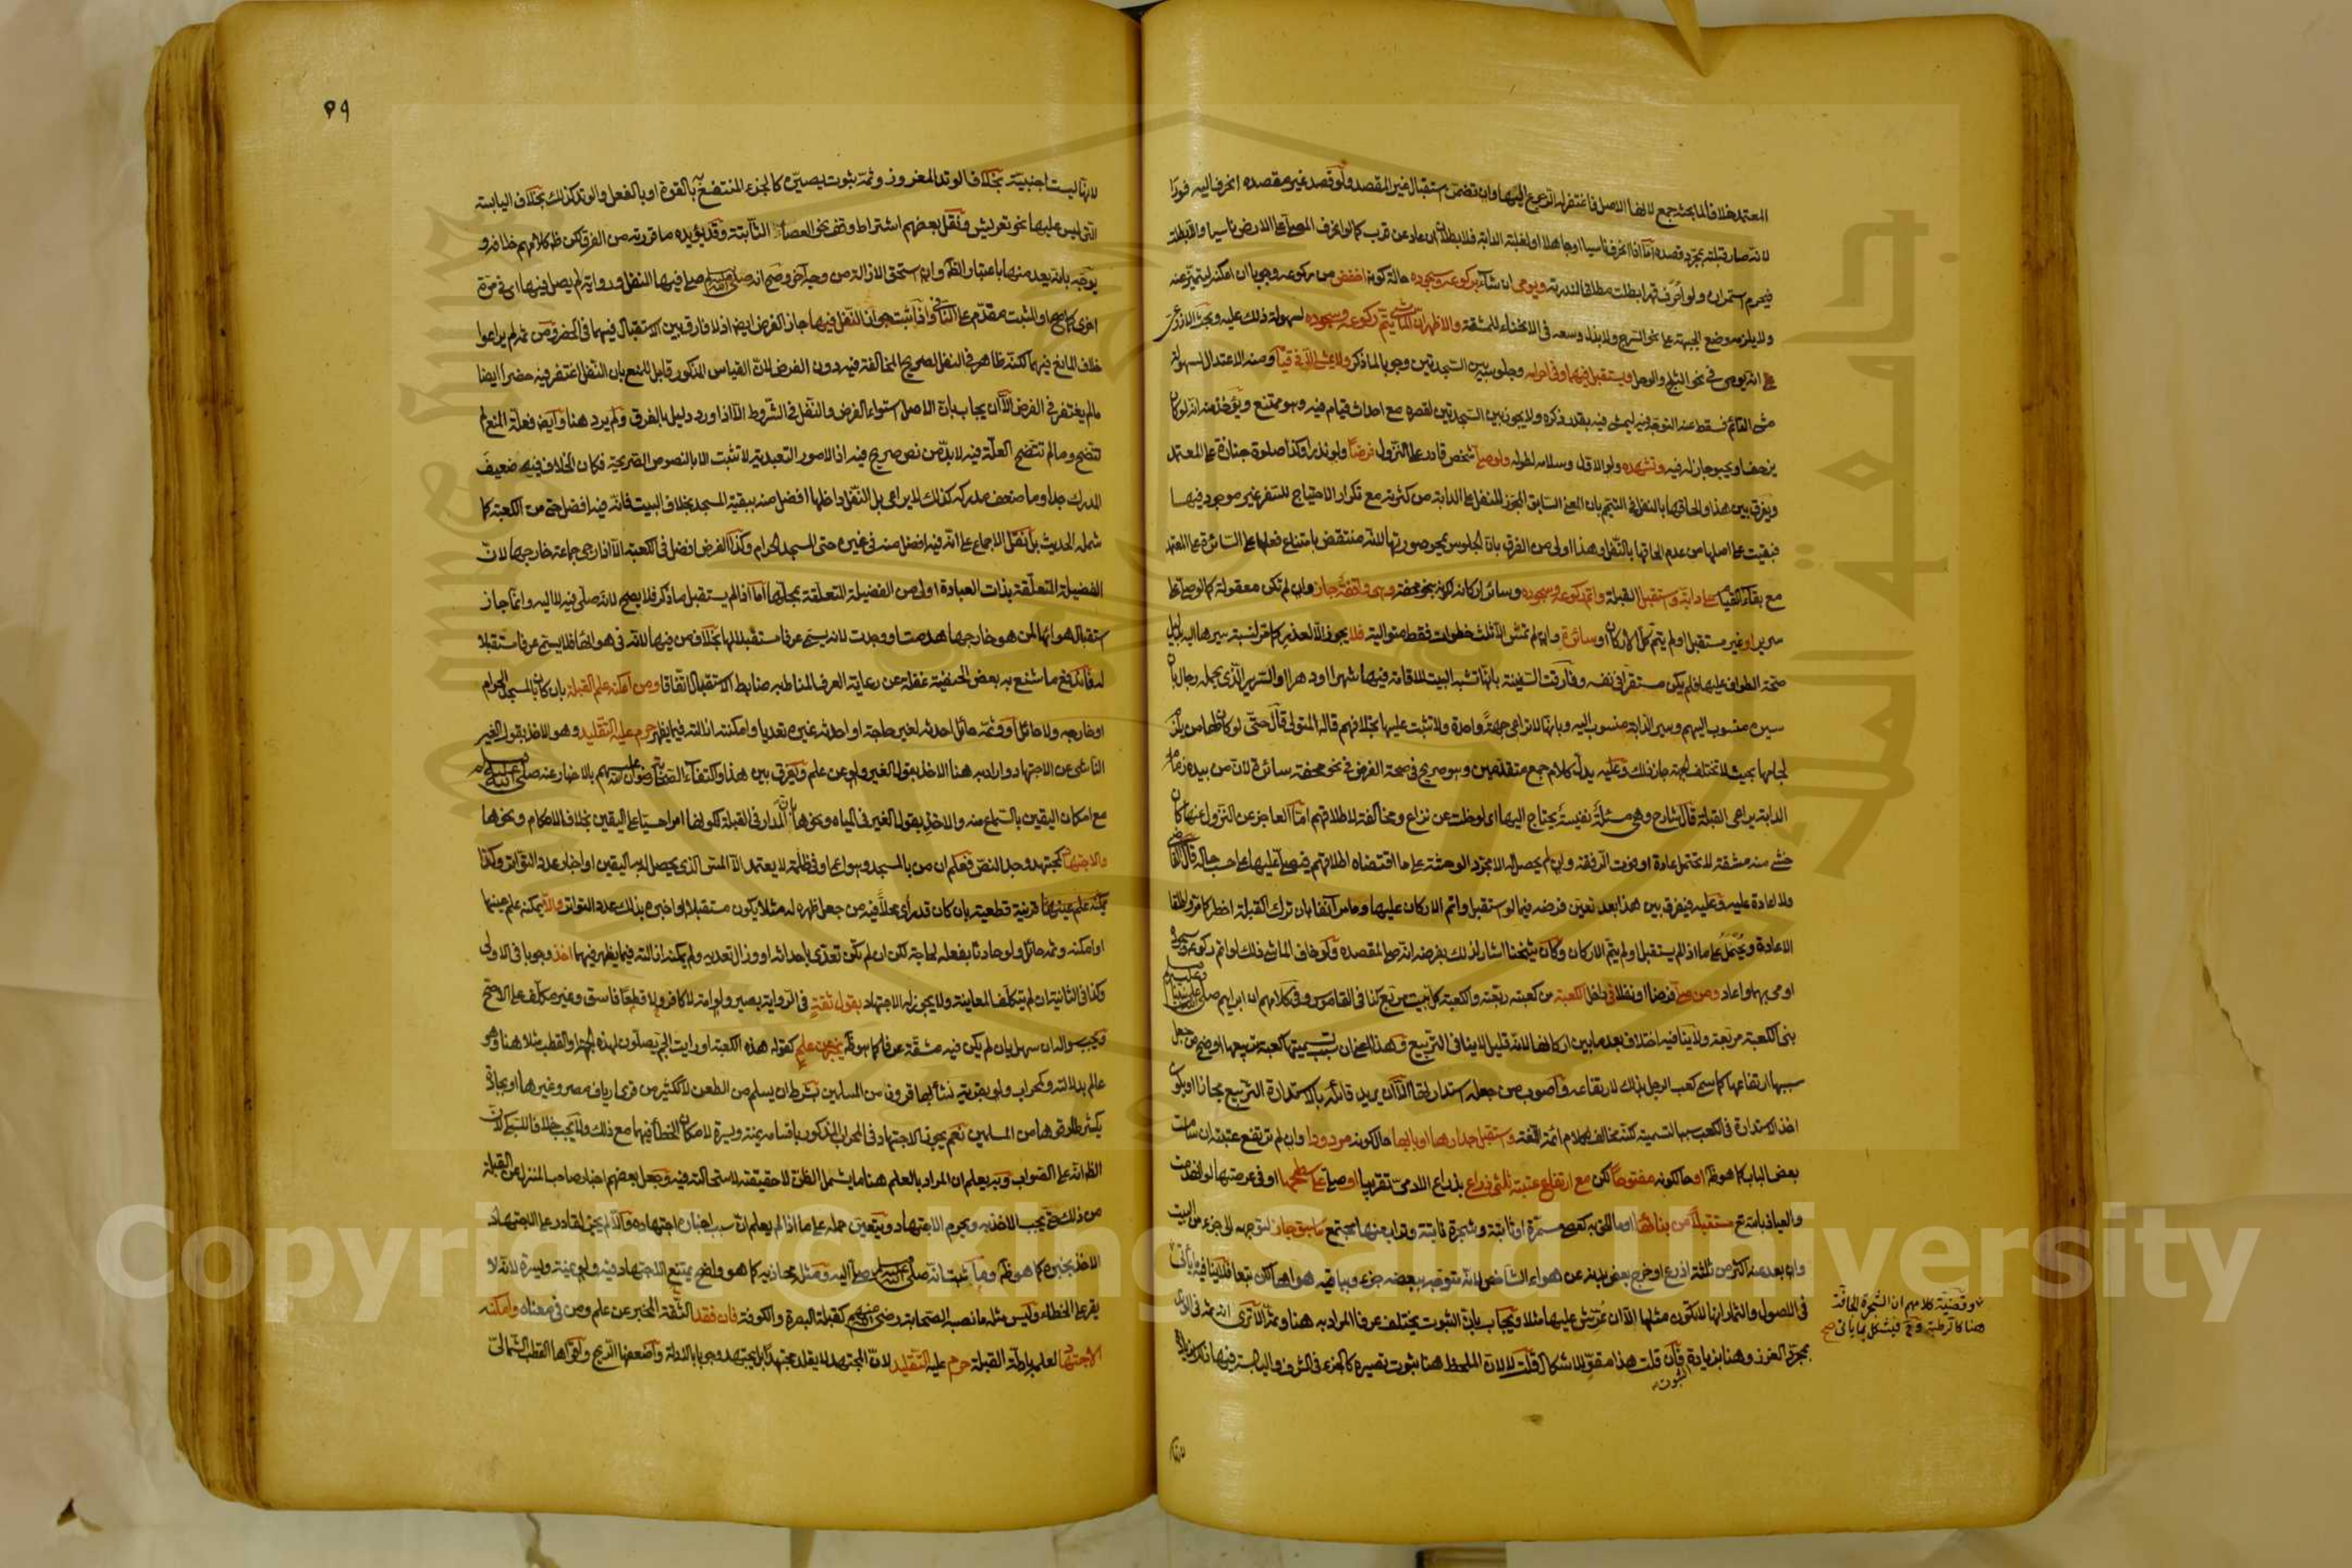 المعتمد خلافا لما بحثه جمع لانها الاصل فاغتفر له الرجوع اليها وان تضمن استقبال غير المقصد ولو قصد غير مقصده انحرف اليه فورا
لانه صار قبلته بمجرد قصده اما اذا انحرف ناسيا او جاهلا او لغلبة الدابة فلا بطلان ان عاد عن قرب كما لو انحرف المصلي على الارض ناسيا والا بطلت
فيحرم استمراره ولو احرف قهرا بطلت مطلقا لندرته ويومى ان شاء بركوعه وسجوده حالة كونه اخفض من ركوعه وجوبا ان امكنه ليتميز عنه
ولا يلزمه وضع الجبهة على نحو السرج ولا بذل وسعه في الانحناء للمشقة والاظهر ان الماشي يتم ركوعه وسجوده لسهولة ذلك عليه وبحث الاذرعي
انه يومى في نحو الثلج والوحل ويستقبل فيهما وفي احرامه وجلوسه بين السجدتين وجوبا لما ذكر ولا يمشي الا في قيامه ومنه الاعتدال لسهولة
مشي القائم فسقط عنه التوجه فيه ليمشي فيه بقدر ذكره ولا يجوز بين السجدتين لقصره مع احداث قيام فيه وهو ممتنع ويؤخذ منه انه لو كان
يزحف او يحبو جاز له فيه وتشهده ولو الاول وسلامه لطوله ولو صلى شخص قادر على النزول فرضا ولو نذرا وكذا صلوة جنازة على المعتمد
ويفرق بين هذا والحاقها بالنفل في التيمم بان المعنى السابق المجوز للنفل على الدابة من كثرته مع تكرار الاحتياج للسفر غير موجود فيها
فبقيت على اصلها من عدم الحاقها بالنفل وهذا اولى من الفرق بان الجلوس يمحو صورتها لانه منتقض بامتناع فعلها على السائرة على المعتمد
مع بقاء القيام على دابة واستقبل القبلة واتم ركوعه وسجوده وسائر اركانه لكونه بنحو محفة وهي واقفة جاز وان لم تكن معقولة كما لو صلى على
سرير او غير مستقبل او لم يتم كل الاركان او سائرة وان لم تمش الا ثلث خطوات فقط متوالية فلا يجوز الا لعذر كما مر لنسبة سيرها اليه بدليل
صحة الطواف عليها فلم يكن مستقرا في نفسه وفارقت السفينة بانها تشبه البيت للاقامة فيها شهرا او دهرا والسرير الذي يحمله رجال بان
سيره منسوب اليهم وسير الدابة منسوب اليه وبانها لا تراعي جهة واحدة ولا تثبت عليها بخلافهم قاله المتولي قال حتى لو كان لها من يلزم
لجامها بحيث لا تختلف الجهة جاز ذلك وعليه يدل كلام جمع متقدمين وهو صريح في صحة الفرض في نحو محفة سائرة لان من بيده زمام
الدابة يراعي القبلة قال شارح وهي مسئلة نفيسة يحتاج اليها اي لو خلت عن نزاع ومخالفة لاطلاقهم اما العاجز عن النزول عنها كان
خشي منه مشقة لا تحتمل عادة او فوت الرفقة وان لم يحصل له الا مجرد الوحشة على ما اقتضاه اطلاقهم فيصلي عليها على حسب حاله قال القاضي
ولا اعادة عليه وعليه فيفرق بين هذا بعد تعين فرضه فيما لو استقبل واتم الاركان عليها وما مر آنفا بان ترك القبلة اخطر كما مر واطلقا
الاعادة ويحمل على ما اذا لم يستقبل او لم يتم الاركان وكان شيخنا اشار لذلك بفرضه انه صلى لمقصده ولو خاف الماشي ذلك لو اتم ركوعه وسجوده
اومى بهما واعاد ومن صلى فرضا او نفلا في داخل الكعبة من كعبته ربعته والكعبة كل بيت مربع كذا في القاموس وفي كلامهم ان ابراهيم صلى الله عليه وسلم
بنى الكعبة مربعة ولا ينافيه اختلاف بعد ما بين اركانها لانه قليل لا ينافي التربيع وهذا اعني ان سبب تسميتها كعبة تربيعها اوضح من جعل
سببها ارتفاعها كما سمي كعب الرجل بذلك لارتفاعه واصوب من جعله استدارتها الا ان يريد قائله بالاستدارة التربيع مجازا او يكون
اخذ الاستدارة في الكعب سببا لتسميته لكنه مخالف لكلام ائمة اللغة واستقبل جدارها او بابها حال كونه مردودا وان لم ترتفع عتبته ان سامت
بعض الباب كما هو ظ او حال كونه مفتوحا لكن مع ارتفاع عتبته ثلثي ذراع بذراع الآدمي تقريبا او صلى على سطحها او في عرصتها لو انهدمت
والعياذ بالله تع مستقبلا من بنائها او ما الحق به كعصى مسمرة او ثابتة وشجرة نابتة وتراب منها مجتمع ما سبق جاز لتوجهه الى جزء من البيت
وان بعد عنه اكثر من ثلثة اذرع او خرج بعض بدنه عن هواء الشاخص لانه متوجه ببعضه جزء وبباقيه هواها لكن تبعا فلا ينافيه ما يأتي
في الاصول والثمار انها لا تكون مثلها الا ان عرش عليها مثلا ويجاب بان الثبوت يختلف عرفا المراد به هنا وثم الا ترى انه ثم في الوتد
بمجرد الغرز وهنا بزيادة فان قلت هذا مقو للاشكال قلت لا لان الملحظ هنا ثبوت تصيره كالجزء في الشرف واليابسة فيها ذلك
الثبوت
وقضية كلامهم ان الشجرة الجافة
هنا كالرطبة وح فيشكل بما يأتي صح
لانها
٥٩
لانها ليست اجنبية بخلاف الوتد المغروز وثمة ثبوت يصيره كالجزء المنتفع به بالقوة او بالفعل والوتد كذلك بخلاف اليابسة
التي ليس عليها نحو تعريش ونقل بعضهم اشتراط وقف نحو العصا الثابتة وقد يؤيده ما قررته من الفرق لكن ظ كلامهم خلافه و
يوجه بانه يعد منها باعتبار الظ وان استحق الازالة من وجه آخر وصح انه صلى الله عليه وسلم صلى فيها النفل ورواية لم يصل فيها اي في مرة
اخرى كما صح او المثبت مقدم على النافي واذا ثبت جواز النفل فيها جاز الفرض ايضا اذ لا فارق بين الاستقبال فيهما في الحضر ومن ثم لم يراعوا
خلاف المانع فيهما لكنه ظاهر في النفل لصريح المخالفة فيه دون الفرض لان القياس المذكور قابل للمنع بان النفل اغتفر فيه حضرا ايضا
ما لم يغتفر في الفرض الا ان يجاب بان الاصل استواء الفرض والنفل في الشروط الا اذا ورد دليل بالفرق ولم يرد هنا وايضا فعلة المنع لم
تتضح وما لم تتضح العلة فيه لا بد من نص صريح فيه اذ الامور التعبدية لا تثبت الا بالنصوص الصريحة فكان الخلاف فيه ضعيف
المدرك جدا وما ضعف مدركه كذلك لا يراعى بل النفل داخلها افضل منه ببقية المسجد بخلاف البيت فانه فيه افضل حتى من الكعبة كما
شمله الحديث بل نقل الاجماع على انه فيه افضل منه في غيره حتى المسجد الحرام وكذا الفرض افضل في الكعبة الا اذا رجي جماعة خارجها لان
الفضيلة المتعلقة بذات العبادة اولى من الفضيلة المتعلقة بمحلها اما اذا لم يستقبل ما ذكر فلا يصح لانه صلى فيه لا اليه وانما جاز
استقبال هوائها لمن هو خارجها هدمت او وجدت لانه يسمى عرفا مستقبلا لها بخلاف من فيها لانه في هوائها فلا يسمى عرفا مستقبلا
له فاندفع ما شنع به بعض الحنفية غفلة عن رعاية العرف المناط به ضابط الاستقبال اتفاقا ومن امكنه علم القبلة بان كان بالمسجد الحرام
او خارجه ولا حائل او وثمة حائل احدثه لغير حاجة او احدثه غيره تعديا وامكنته ازالته فيما يظهر حرم عليه التقليد وهو الاخذ بقول الغير
الناشئ عن الاجتهاد واراد به هنا الاخذ بقول الغير ولو عن علم ويفرق بين هذا واكتفاء الصحابة رضوان الله عليهم بالاخبار عنه صلى الله عليه وسلم
مع امكان اليقين بالسماع منه والاخذ بقول الغير في المياه ونحوها بان المدار في القبلة لكونها امرا حسيا على اليقين بخلاف الاحكام ونحوها
والاجتهاد كمجتهد وجد النص فعلم ان من بالمسجد وهو اعمى او في ظلمة لا يعتمد الا المس الذي يحصل له به اليقين او اخبار عدد التواتر وكذا
يمكنه علم عينها قرينة قطعية بان كان قد رأى محلا فيه من جعل ظهره له مثلا يكون مستقبلا او اخبره بذلك عدد التواتر والا يمكنه علم عينها
او امكنه وثمة حائل ولو حادثا بفعله لحاجة لكن ان لم تكن تعدى باحداثه او وزال تعديه ولم يمكنه ازالته فيما يظهر فيهما اخذ وجوبا في الاولى
وكذا في الثانية ان لم يتكلف المعاينة ولا يجوز له الاجتهاد بقول ثقة في الرواية بصير ولو امة لا كافر ولا قطعا فاسق وغير مكلف على الاصح
ويجب سواله ان سهل بان لم يكن فيه مشقة عرفا كما هو ظ يخبر عن علم كقوله هذه الكعبة او رايت الجم يصلون لهذه الجهة او القطب مثلا هنا وهو
عالم بدلالته وكمحراب ولو بقرية نشأ بها قرون من المسلمين بشرط ان يسلم من الطعن لا ككثير من قرى ارياف مصر وغيرها او بجادة
يكثر طارقوها من المسلمين نعم يجوز الاجتهاد في المحراب المذكور باقسامه يمنة ويسرة لامكان الخطأ فيها مع ذلك ولا يجب خلافا للسبكي لان
الظ انه على الصواب وبه يعلم ان المراد بالعلم هنا ما يشمل الظن لا حقيقته لاستحالته فيه وجعل بعضهم اخبار صاحب المنزل عن القبلة
من ذلك حتى يجب الاخذ به ويحرم الاجتهاد ويتعين حمله على ما اذا لم يعلم ان سبب اخباره اجتهاده والا لم يجز لقادر على الاجتهاد
الاخذ بخبره كما هو ظ وما ثبت انه صلى الله عليه وسلم صلى اليه ومثله محاذيه كما هو واضح يمتنع الاجتهاد فيه ولو يمنة ويسرة لانه لا
يقر على الخطاء وليس مثله ما نصبه الصحابة رضي الله عنهم كقبلة البصرة والكوفة فان فقد الثقة المخبر عن علم ومن في معناه وامكنه
الاجتهاد لعلمه بادلة القبلة حرم عليه التقليد لان المجتهد لا يقلد مجتهدا بل يجتهد وجوبا بالادلة واضعفها الريح واقواها القطب الشمالي
Copyright © King Saud University